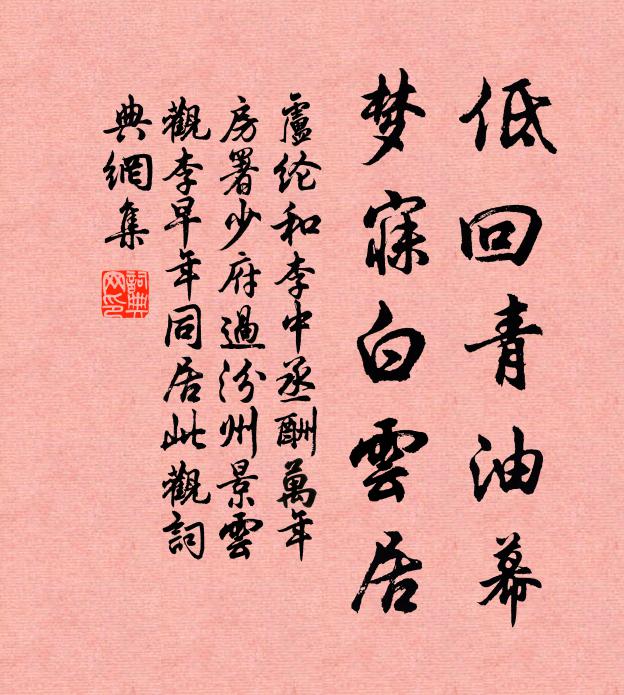 低回青油幕
梦寐白雲居
盧纶和李中丞酬萬年
房署少府過汾州景雲
觀李早年同居此觀詞
典網集
詞典網印